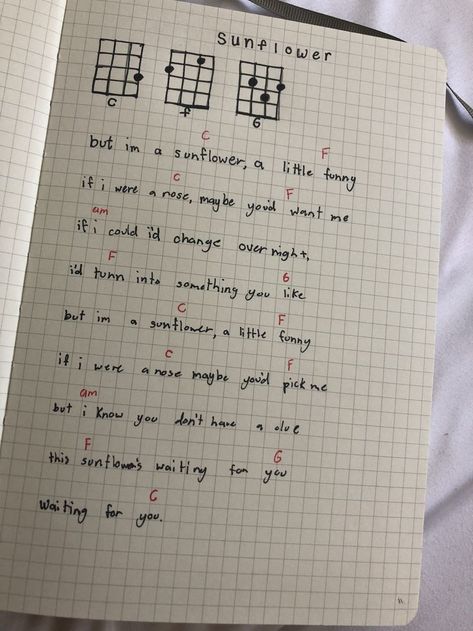 Sunflower
C f G
C F
but im a sunflower, a little funny
C F
if i were a rose, maybe you'd want me
am
if i could i'd change overnight,
F G
i'd turn into something you like
C F
but im a sunflower, a little funny
C F
if i were a rose maybe you'd pick me
am
but i know you don't have a clue
F G
this sunflower's waiting for you
C
waiting for you.